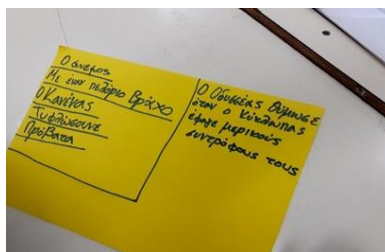 Ο άνεμος
Με έναν πελώριο βράχο
Ο Κανένας
Τυφλώσουνε
Πρόβατα
Ο Οδυσσέας θύμωσε
όταν ο Κύκλωπας
έφαγε μερικούς
συντρόφους τους